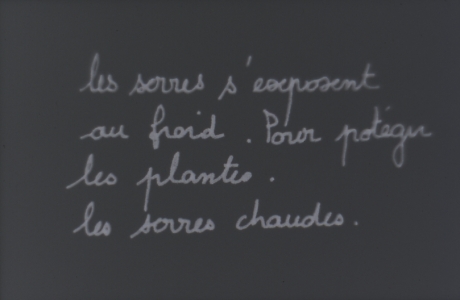 les serres s'exposent
au froid . Pour potéger
les plantes .
les serres chaudes .